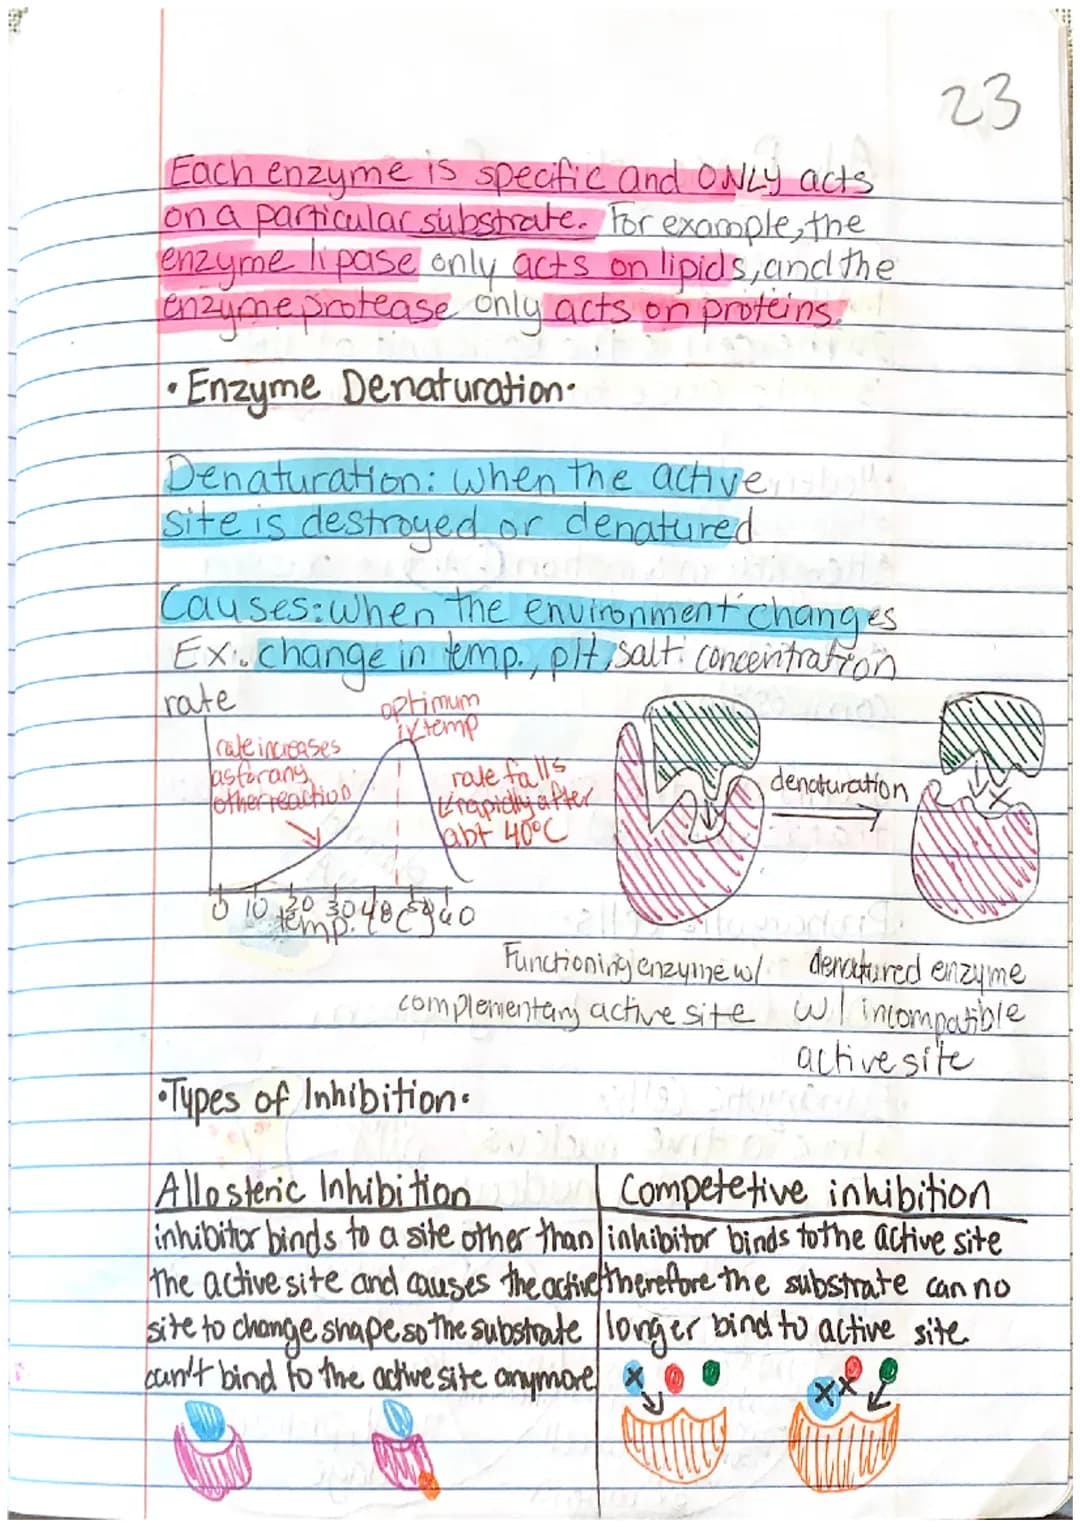 23
Each enzyme is specific and ONLY acts
on a particular substrate. For example, the
enzyme lipase only acts on lipids, and the
enzyme protease only acts on proteins.
• Enzyme Denaturation •
Denaturation: when the active
site is destroyed or denatured
Causes: when the environment changes
Ex: change in temp., pH, salt concentration
rate
optimum
temp
rate increases
as for any
other reaction
rate falls
rapidly after
abt 40°C
denaturation
0 10 20 30 40
temp. (°C)
Functioning enzyme w/
complementary active site
denatured enzyme
w/ incompatible
active site
• Types of Inhibition •
Allosteric Inhibition
inhibitor binds to a site other than
the active site and causes the active
site to change shape so the substrate
can't bind to the active site anymore
Competetive inhibition
inhibitor binds to the active site
therefore the substrate can no
longer bind to active site.
X
X X